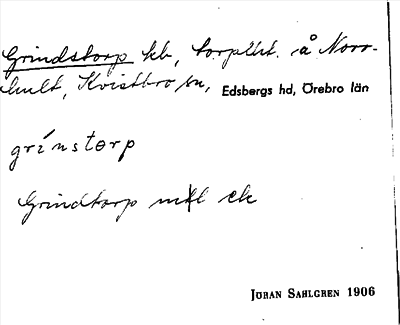 Grindstorp kb, torplht. å Norr-
hult, Kvistbro sn, Edsbergs hd, Örebro län
grínstorp
Grindtorp mtl ek
JÖRAN SAHLGREN 1906